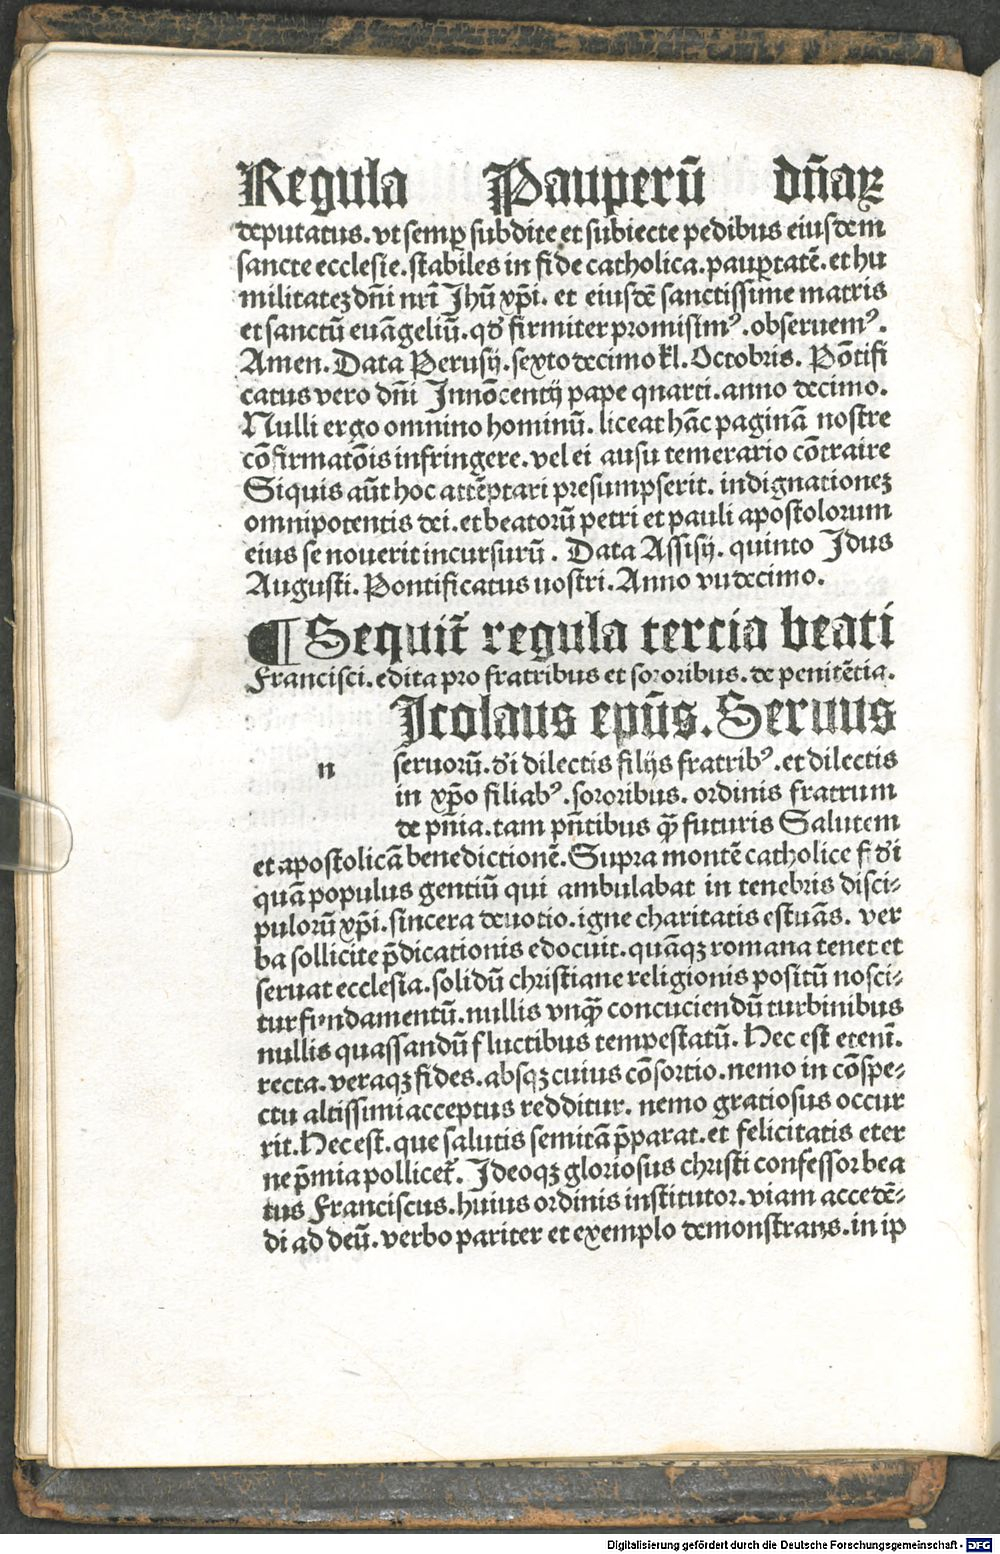 Regula Pauperū dn̄aꝝ
deputatus. vt semꝑ subdite et subiecte pedibus eiusdem
sancte ecclesie. stabiles in fide catholica. pauꝑtatē. et hu
militateꝫ dn̄i nr̄i Jhū xp̄i. et eiusdē sanctissime matris
et sanctū euāgeliū. qđ firmiter promisimꝰ. obseruemꝰ.
Amen. Data Perusij. sexto decimo kl̄. Octobris. Pōtifi
catus vero dn̄i Innōcentij pape quarti. anno decimo.
Nulli ergo omnino hominū. liceat hāc paginā nostre
cōfirmatōis infringere. vel ei ausu temerario cōtraire
Siquis aūt hoc attēptari presumpserit. indignationeꝫ
omnipotentis dei. et beatorū petri et pauli apostolorum
eius se nouerit incursurū. Data Assisij. quinto Idus
Augusti. Pontificatus nostri. Anno vndecimo.
¶ Sequit̄ regula tercia beati
Francisci. edita pro fratribus et sororibus. de penitētia.
Icolaus ep̄us. Seruus
n seruorū. d̄i dilectis filijs fratribꝰ. et dilectis
in xp̄o filiabꝰ. sororibus. ordinis fratrum
de pn̄ia. tam pn̄tibus ꝙ̄ futuris Salutem
et apostolicā benedictionē. Supra montē catholice fid̄i
quā populus gentiū qui ambulabat in tenebris disci⸗
pulorū xp̄i. sincera deuotio. igne charitatis estuās. ver
ba sollicite p̄dicationis edocuit. quāqꝫ romana tenet et
seruat ecclesia. solidū christiane religionis positū nosci⸗
tur fundamentū. nullis vnꝙ̄ concuciendū turbinibus
nullis quassandū fluctibus tempestatū. Hec est etenī.
recta. veraqꝫ fides. absqꝫ cuius cōsortio. nemo in cōspe⸗
ctu altissimi acceptus redditur. nemo gratiosus occur
rit. Hec est. que salutis semitā p̄parat. et felicitatis eter
ne p̄mia pollicet̄. Ideoqꝫ gloriosus christi confessor bea
tus Franciscus. huius ordinis institutor. viam accedē⸗
di ad deū. verbo pariter et exemplo demonstrans. in ip
Digitalisierung gefördert durch die Deutsche Forschungsgemeinschaft - DFG